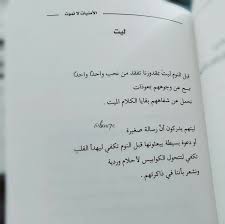 الأمنيات لا تموت
ليت
قبل النوم ليت بمقدورنا تفقد من نحب واحدًا واحدًا
نمسح عن وجوههم بعوذات
نحمل عن شفاههم بقايا الكلام الميت
ليتهم يدركون أنّ رسالة صغيرة
أو دعوة بسيطة يبعثونها قبل النوم تكفي ليهدأ القلب
تكفي لتتحول الكوابيس لأحلام وردية
ونشعر بأننا في ذاكرتهم.